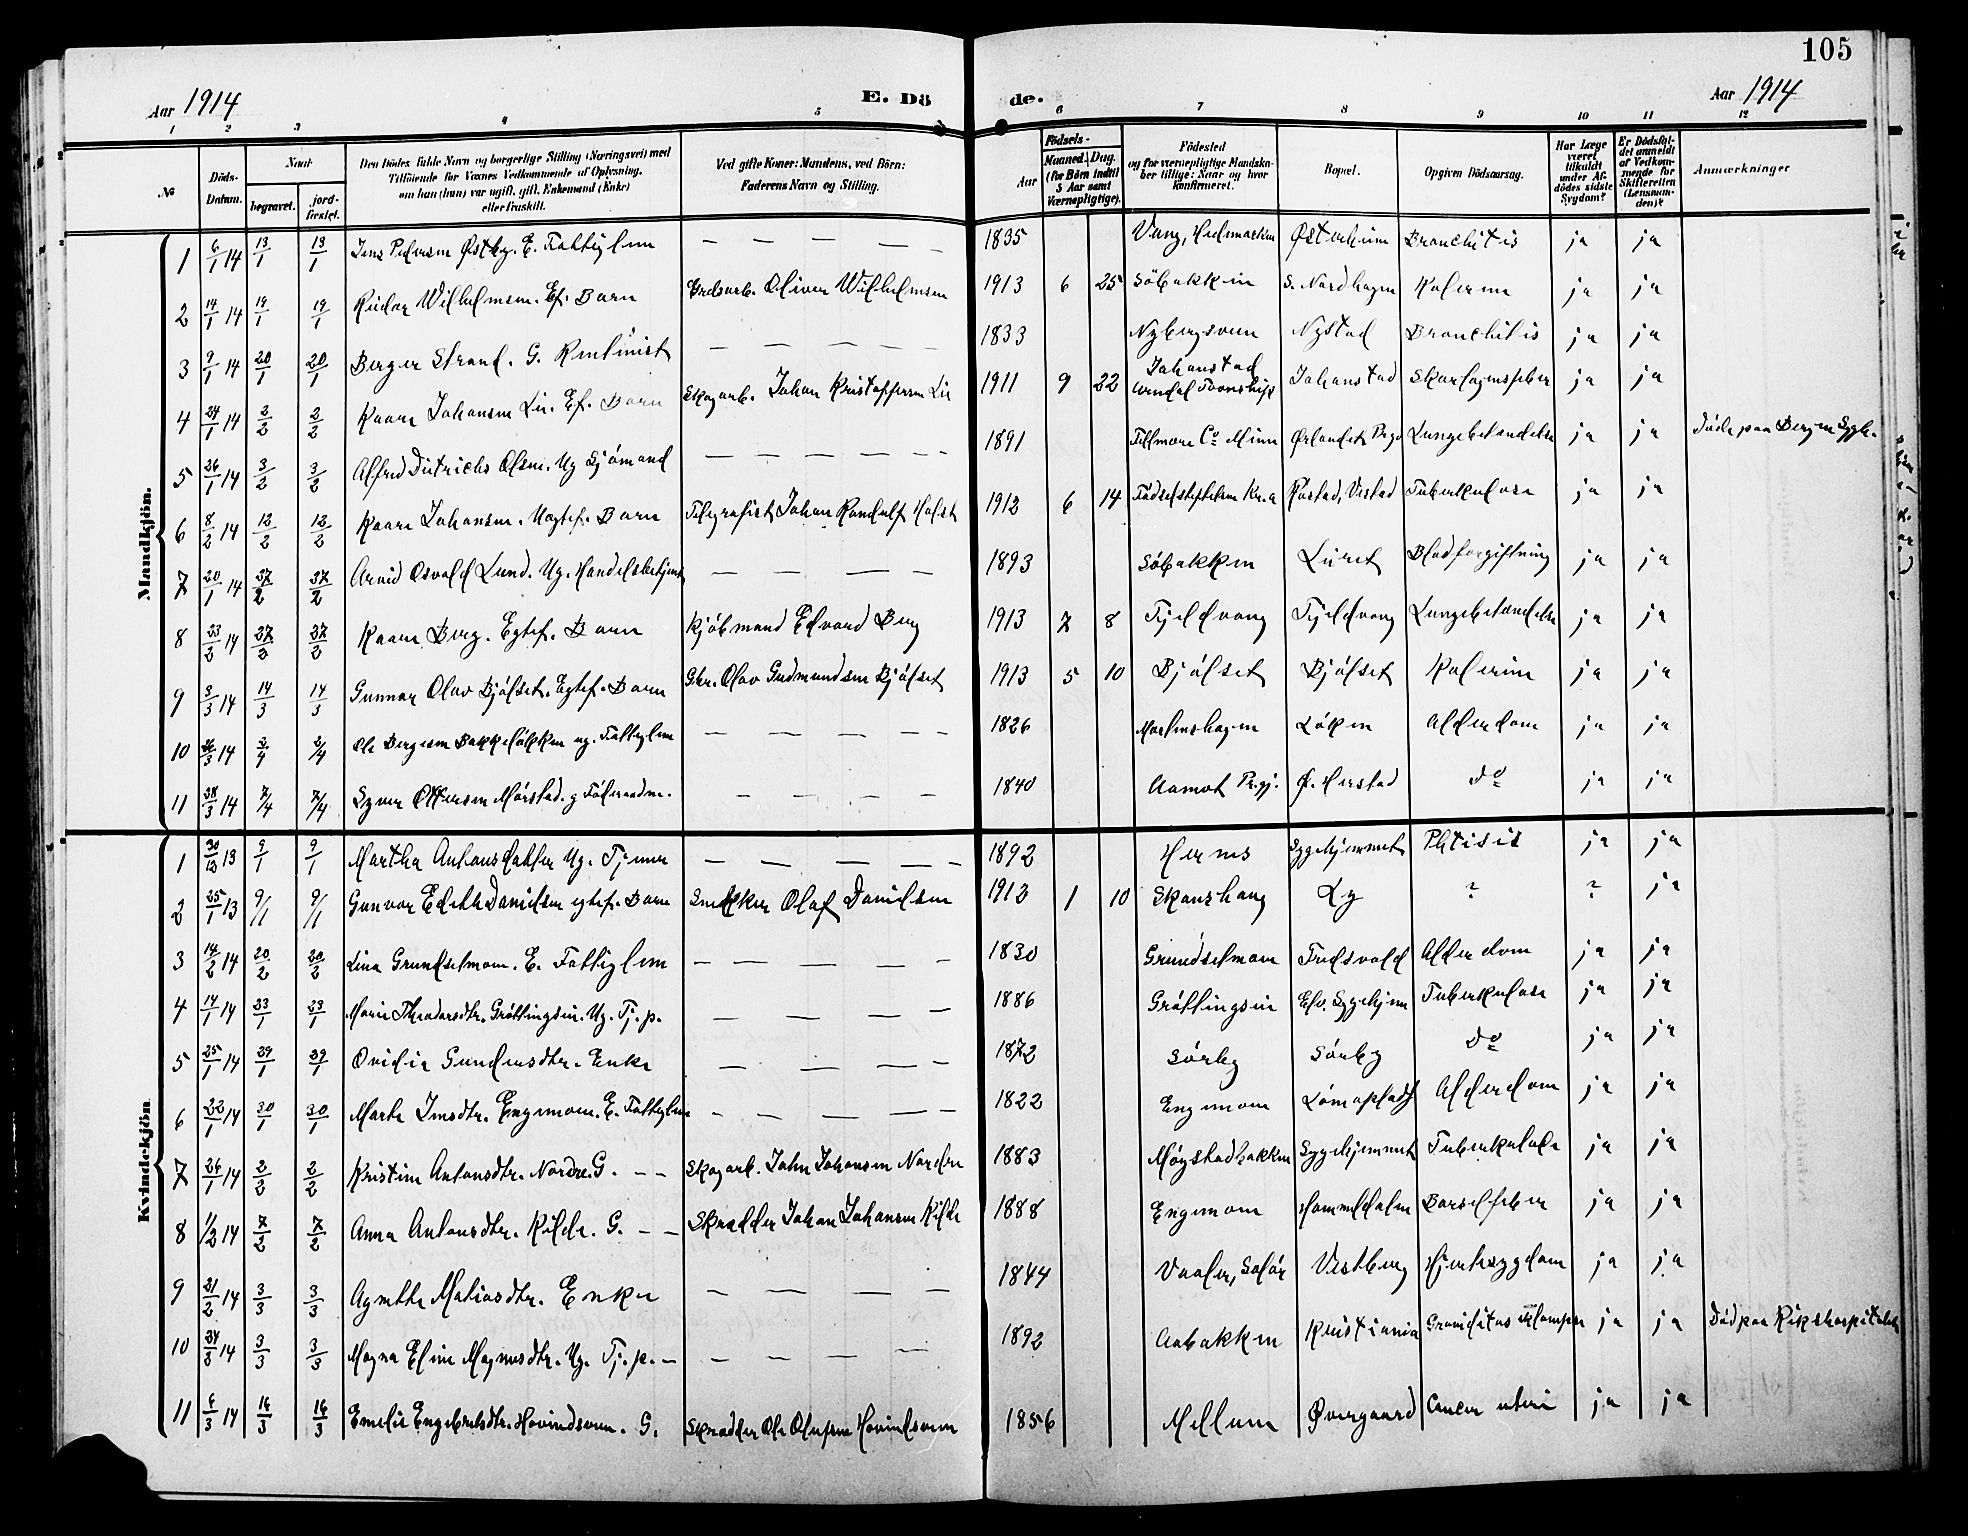 105
Aar 1914
E. Dö
de.
Aar 1914
1 2 3 4 5 6 7 8 9 10 11 12
№
Döds-Datum.
Naar
begravet.
jord-fæstet.
Den Dödes fulde Navn og borgerlige Stilling (Næringsvei) med Tilföiende for Voxnes Vedkommende af Oplysning, om han (hun) var ugift, gift, Enkemand (Enke) eller fraskilt.
Ved gifte Koner: Mandens, ved Börn: Faderens Navn og Stilling.
Födsels-
Aar
Maaned. Dag. (for Börn indtil 5 Aar samt Værnepligtige).
Födested og for værnepligtige Mandskaber tillige: Naar og hvor konfirmeret.
Bopæl.
Opgiven Dödsaarsag.
Har Læge været tilkaldt under Afdödes sidste Sygdom?
Er Dödsfaldet anmeldt af Vedkommende for Skifteretten (Lensmanden)?
Anmærkninger
Mandkjön.
1 6/1 14 13/1 13/1 Jens Pedersen Østby. E. Fattiglem — — — — 1835 Vang, Hedmarken Østerheim Bronchitis ja ja
2 14/1 14 19/1 19/1 Reidar Wilhelmsen. Ef. Barn Oliver Wilhelmsen 1913 6 25 Söbakken S. Nordhagen ja ja
3 9/1 14 20/1 20/1 Berger Strand. G. — — — — 1833 Nybergsveen Nystad Bronchitis ja ja
4 24/1 14 2/2 2/2 Kaare Johansen Lie. Ef. Barn Skogarb. Johan Kristoffersen Lie 1911 9 22 Johanstad Johanstad Skarlagensfeber ja ja
5 26/1 14 3/2 3/2 Alfred Ditrichs Olsen. Ug Sjömand — — — — — 1891 Fillmore Co Minn Ørlandet Lungebetændelse ja ja Döde paa Bergen Sygeh.
6 8/2 14 12/2 12/2 Kaare Johansen. Uegtef. Barn Telegrafist Johan Randulf Holst 1912 6 14 Födselsstiftelsen Kr.a Vestad Tuberkulose ja ja
7 20/1 14 27/2 27/2 Arvid Osvald Lund. Ug. Handelsbetjent — — — — 1893 Söbakken Luret Blodforgiftning ja ja
8 23/2 14 27/2 27/2 Kaare Berg. Egtef. Barn Kjöbmand Edvard Berg 1913 7 8 Fjeldvang Fjeldvang Lungebetændelse ja ja
9 3/3 14 14/3 14/3 Gunnar Olav Bjölset. Egtef. Barn Olav Gudmundsen Bjölset 1913 5 10 Bjölset Bjölset ja ja
10 26/3 14 2/4 2/4 Ole Bergersen Bakkelökken ug. Fattiglem — — — — — 1826 Malmshagen Löken Alderdom ja ja
11 28/3 14 7/4 7/4 Syver Ottersen — — — — 1840 Aamot Prgj. do ja ja
Kvindekjön
1 30/12 13 9/1 9/1 Martha Antonsdatter Ug. Tjener — — — — 1892 Hernes Sygehjemmet Phtisis ja ja
2 25/1 13 9/1 9/1 Gunvor Edith Danielsen egtef. Barn Snekker Olaf Danielsen 1912 1 10 Skanshaug Ly ? ? ja
3 14/2 14 20/2 20/2 Lina Grundsetmoen. E. Fattiglem — — — — — 1830 Grundsetmoen Fredsvold Alderdom ja ja
4 14/1 14 23/1 23/1 Marie Theodorsdtr. Gröttingseie. Ug. Tj. p. — — — — 1886 Gröttingseie Elv. Sygehjem Tuberkulose ja ja
5 25/1 14 29/1 29/1 Ovidie Gundersdtr. Enke — — — — 1872 Sörby Sörby do ja ja
6 22/1 14 30/1 30/1 Marte Jensdtr. Engemoen. E. Fattiglem — — — — — 1822 Engemoen Alderdom ja ja
7 26/1 14 2/2 2/2 Kristine Antonsdtr. Nordre. G. — — Skogarb. John Johansen Nordre 1883 Møystadbakken Sygehjemmet Tuberkulose ja ja
8 1/2 14 7/2 7/2 Anna Antonsdtr. Kilde. G. — — Skrædder Johan Johansen Kilde 1888 Engemoen Hommeldalen Barselfeber ja ja
9 21/2 14 3/3 3/3 Agnethe Matiasdtr. Enke — — — — — 1844 Vaaler, Solör Vestberg Hjertesygdom ja ja
10 3/3 3/3 Magna Eline Magnusdtr. Ug. Tj. p. — — — — — 1892 Aabakken Kristiania Graviditas eklampsi ja ja Död paa Rikshospitalet
11 6/3 14 16/3 16/3 Emelie Engebretsdtr. Hovindsveen. G. Skrædder Ole Olufsen Hovindsveen 1856 Mellum Øvergaard Cancer uteri ja ja